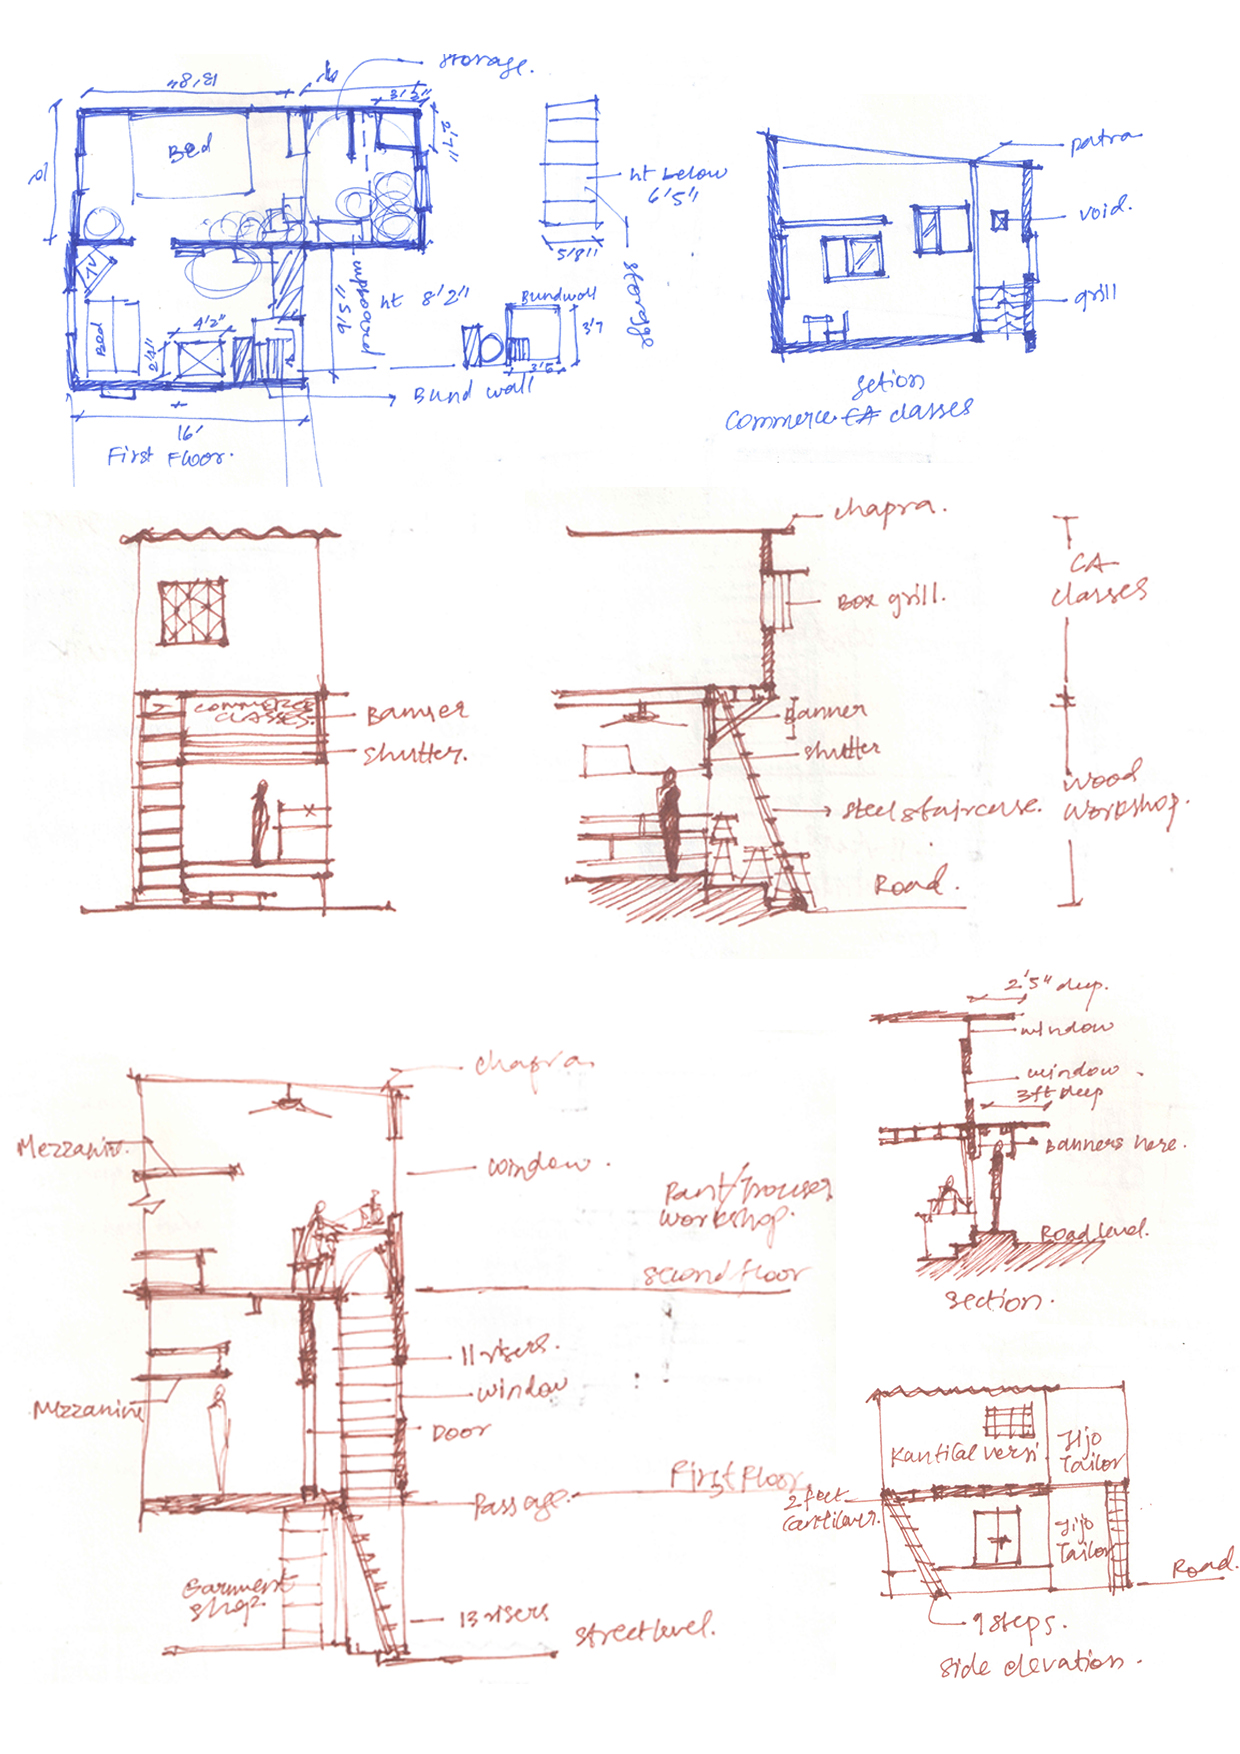 storage.
13'8"
3'2"
2'7"
Bed
TV
Bed
4'2"
2'4"
cupboard
9'5"
ht 8'2"
16'
First Floor.
Bund wall
Bundwall
3'7
3'6"
5'8"
ht below
6'5"
storage
patra
void.
grill
setion
Commerce CA classes
COMMERCE
CLASSES.
Banner
shutter.
chapra.
Box grill.
Banner
shutter
steel staircase.
Road.
CA
classes
Wood
workshop.
2'5" deep.
window
window
3ft deep
Banners here.
Road level.
section.
chapra
Mezzanine.
window.
Pant/Trouser
workshop.
second floor
11 risers.
window
Mezzanine
Door
First Floor
Passage.
Garment
shop.
13 risers
street level.
Kantilal versi
Jijo
Tailor
2 feet
cantilever.
Jijo
Tailor
Road.
9 steps.
side elevation.